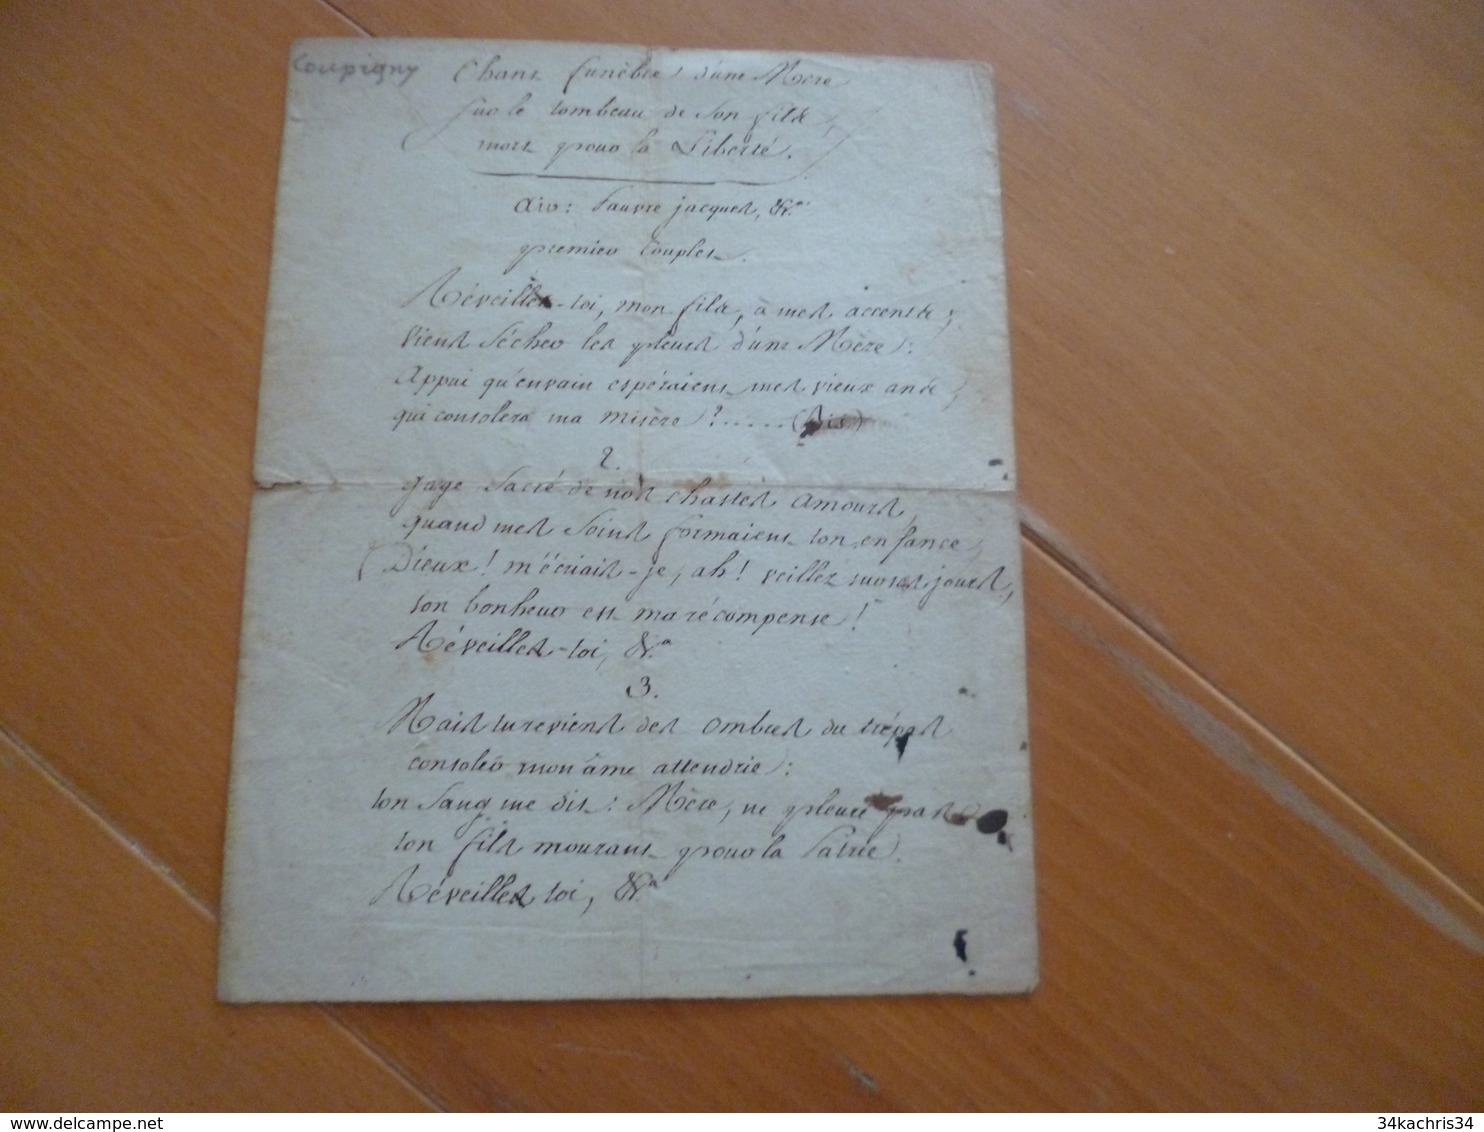 Coupigny
Chant funèbre d'une Mère
sur le tombeau de son fils,
mort pour la Liberté.
air: Pauvre jacques, &a.
premier Couplet.
Réveilles-toi, mon fils, à mes accents;
viens sécher les pleurs d'une Mère:
Appui qu'envain espéraient mes vieux ans,
qui consolera ma misère?..... (Bis)
2.
gage sacré de nos chastes amours,
quand mes soins formaient ton enfance,
Dieux! m'écriais-je, ah! veillez sur ses jours,
son bonheur est ma récompense!
Réveilles-toi, &a
3.
Mais tu reviens des ombres du trépas
consoler mon âme attendrie:
ton sang me dit: Mère, ne pleure pas
ton fils mourant pour la Patrie.
Réveilles toi, &a
34kachris34
delcampe.net